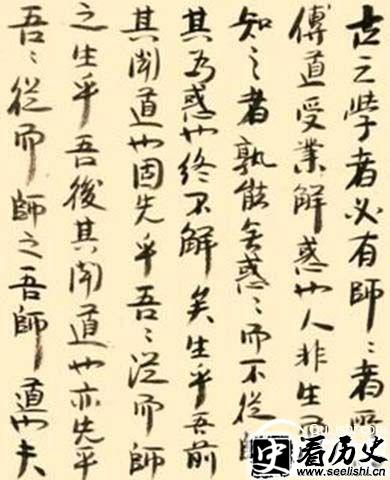 古之學者必有師〻者所
傳道受業解惑也人非生
知之者孰能無惑〻而不從師
其為惑也終不解矣生乎吾前
其聞道也固先乎吾〻從而師
之生乎吾後其聞道也亦先乎
吾〻從而師之吾師道也夫
看历史
www.seelishi.com